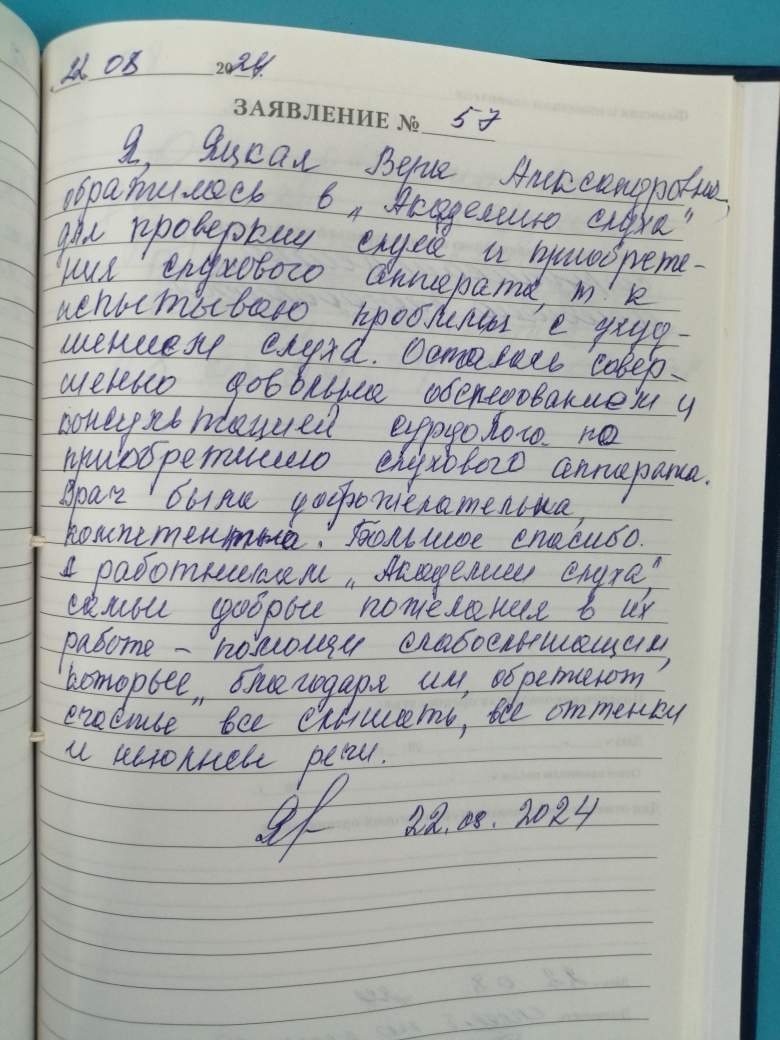 22 08 2024.
ЗАЯВЛЕНИЕ № 57
Я, Яцкая Вера Александровна,
обратилась в „Академию слуха"
для проверки слуха и приобрете-
ния слухового аппарата, т к
испытываю проблемы с ухуд-
шением слуха. Осталась совер-
шенно довольна обследованием и
консультацией сурдолога по
приобретению слухового аппарата.
Врач была доброжелательна,
компетентна. Большое спасибо.
А работникам „Академии слуха"
самые добрые пожелания в их
работе – помощи слабослышащим,
которые, благодаря им, обретают
счастье все слышать, все оттенки
и нюансы речи.
22.08.2024